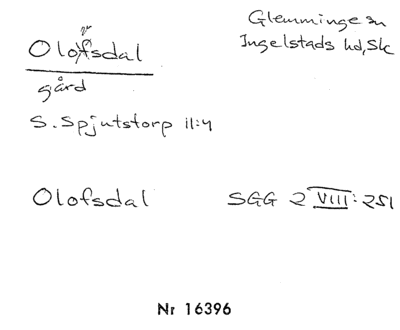 Glemminge sn
Olofsdal
Ingelstads hd, Sk
gård
S. Spjutstorp 11:4
Olofsdal SGG 2 VIII: 251
Nr 16396